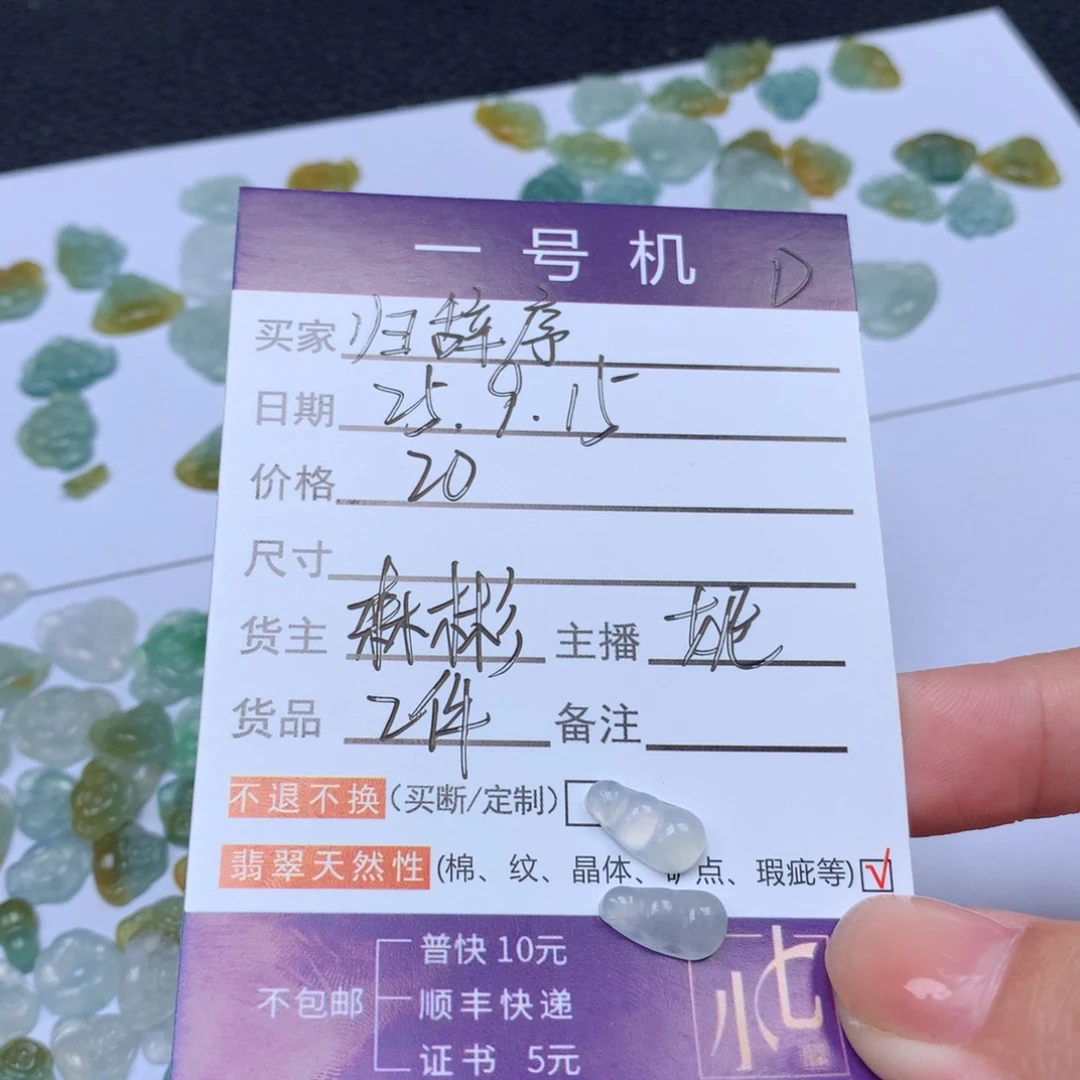 一号机 D
买家 归辞序
日期 25.9.15
价格 20
尺寸
货主 彬 主播 妮
货品 2件 备注
不退不换(买断/定制)
翡翠天然性(棉、纹、晶体、矿点、瑕疵等)√
普快10元
不包邮 顺丰快递
证书 5元